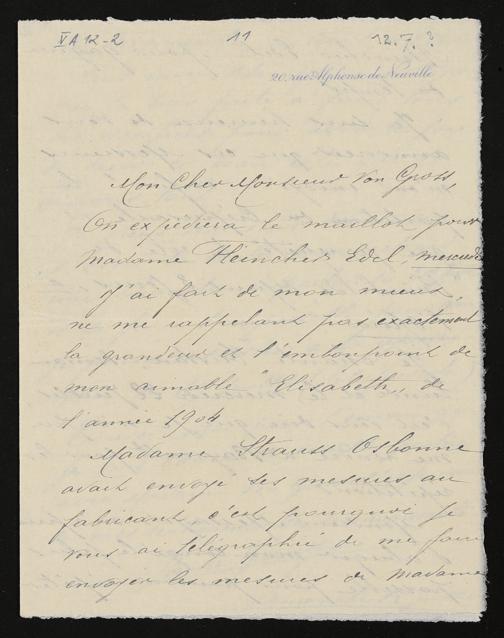 VA 12-2
11
12.7.?
20, rue Alphonse de Neuville
Mon Cher Monsieur von Gross,
On expédiera le maillot pour
Madame Fleincher Edel, mercredi
J'ai fait de mon mieux,
ne me rappelant pas exactement
la grandeur et l'embonpoint de
mon aimable "Elisabeth,, de
l'année 1904
Madame Strauss Osborne
avait envoyé ses mesures au
fabricant c'est pourquoi je
vous ai télégraphié de me faire
envoyer les mesures de Madame